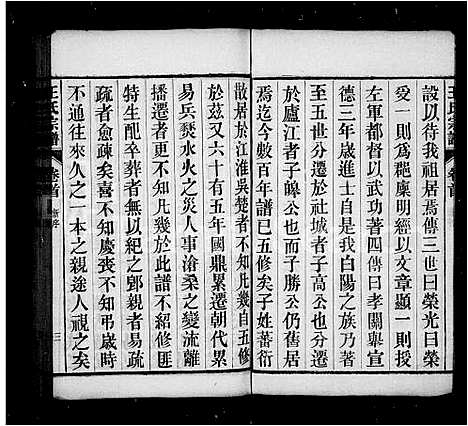 王氏宗譜
卷首
設以待我祖居焉傳三世曰榮光曰榮
受一則為郡庠明經以文章顯一則授
左軍都督以武功著四傳曰孝關舉宣
德三年歲進士自是我白陽之族乃著
至五世分遷於社城者子高公也分遷
於廬江者子皞公也子勝公仍舊居
焉迄今數百年譜已五修矣子姓蕃衍
散居於江淮吳楚者不知凡幾自五修
於茲又六十有五年國鼎累遷朝代累
易兵燹水火之災人事滄桑之變流離
播遷者更不知凡幾於此譜不紹修匪
特生配卒葬者無以紀之郭親者易疏
疏者愈疎矣喜不知慶喪不知弔歲時
不通往來久之一本之親途人視之矣
王氏宗譜
卷首
新序
三